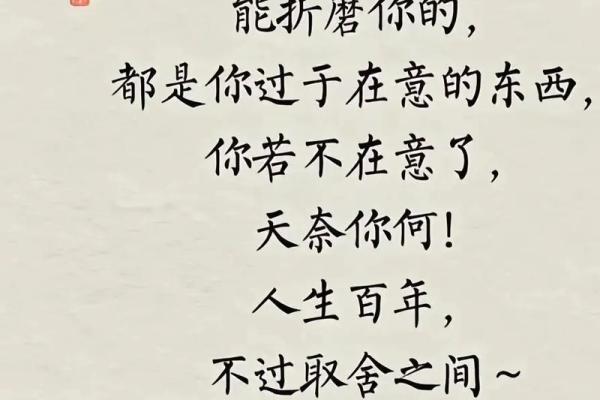 能折磨你的，
都是你过于在意的东西，
你若不在意了，
天奈你何！
人生百年，
不过取舍之间～